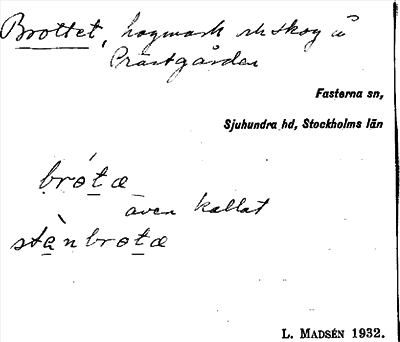 Brottet, hagmark och skog å
Prästgården
Fasterna sn,
Sjuhundra hd, Stockholms län
brótæ
även kallat
stànbrotæ
L. MADSÉN 1932.